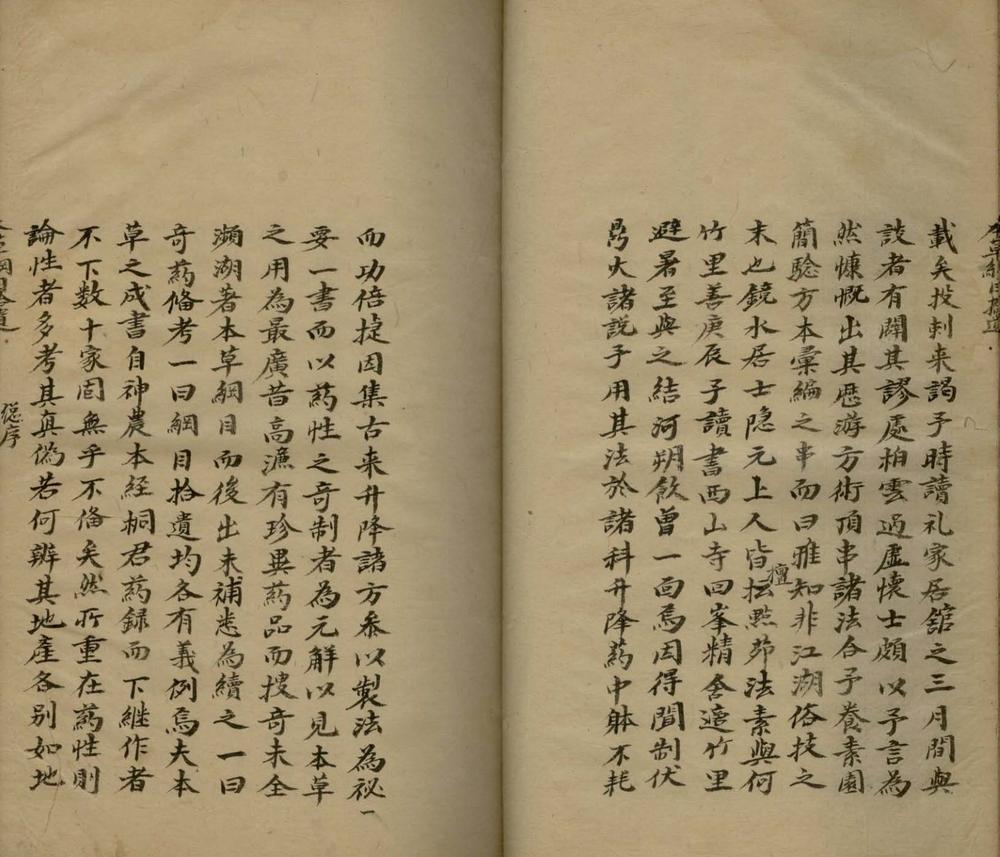 載矣投刺来謁予時讀礼家居舘之三月間與
談者有闢其謬處柏雲逈虛懷士頗以予言為
然慷慨出其歷游方術頂串諸法合予養素園
簡驗方本彙編之串而曰雅知非江湖俗技之
末也鏡水居士隐元上人皆擅㸃茆法素與何
竹里善庚辰予讀書西山寺回峯精舍邀竹里
避暑至與之结河朔飲曾一面焉因得聞制伏
鼎火諸説予用其法於諸科升降葯中躰不耗
而功倍捷因集古来升降諸方叅以製法為祕一
要一書而以葯性之奇制者為元解以見本草
之用為最廣昔高濂有珍異葯品而搜奇未全
瀕湖著本草綱目而後出未補悉為續之一曰
奇葯俻考一曰綱目拾遺均各有義例焉夫本
草之成書自神農本经桐君葯録而下継作者
不下数十家固無乎不俻矣然所重在葯性則
論性者多考其真偽若何辨其地產各别如地
総序